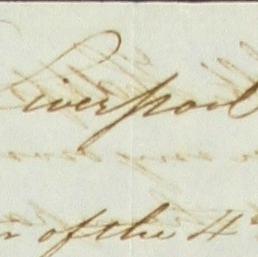 Liverpool
of the 4th